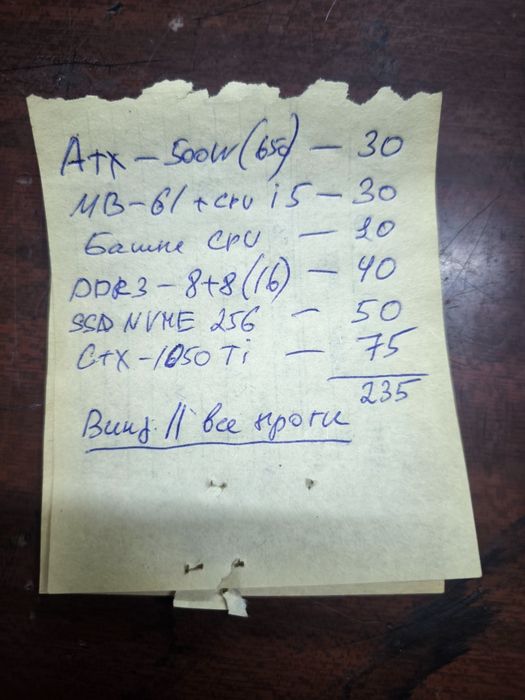 Atx – 500W (650) – 30
MB – 61 + cpu i5 – 30
Башне cpu – 10
DDR3 – 8+8 (16) – 40
SSD NVME 256 – 50
Gtx – 1050 Ti – 75
235
Винд 11 все проги